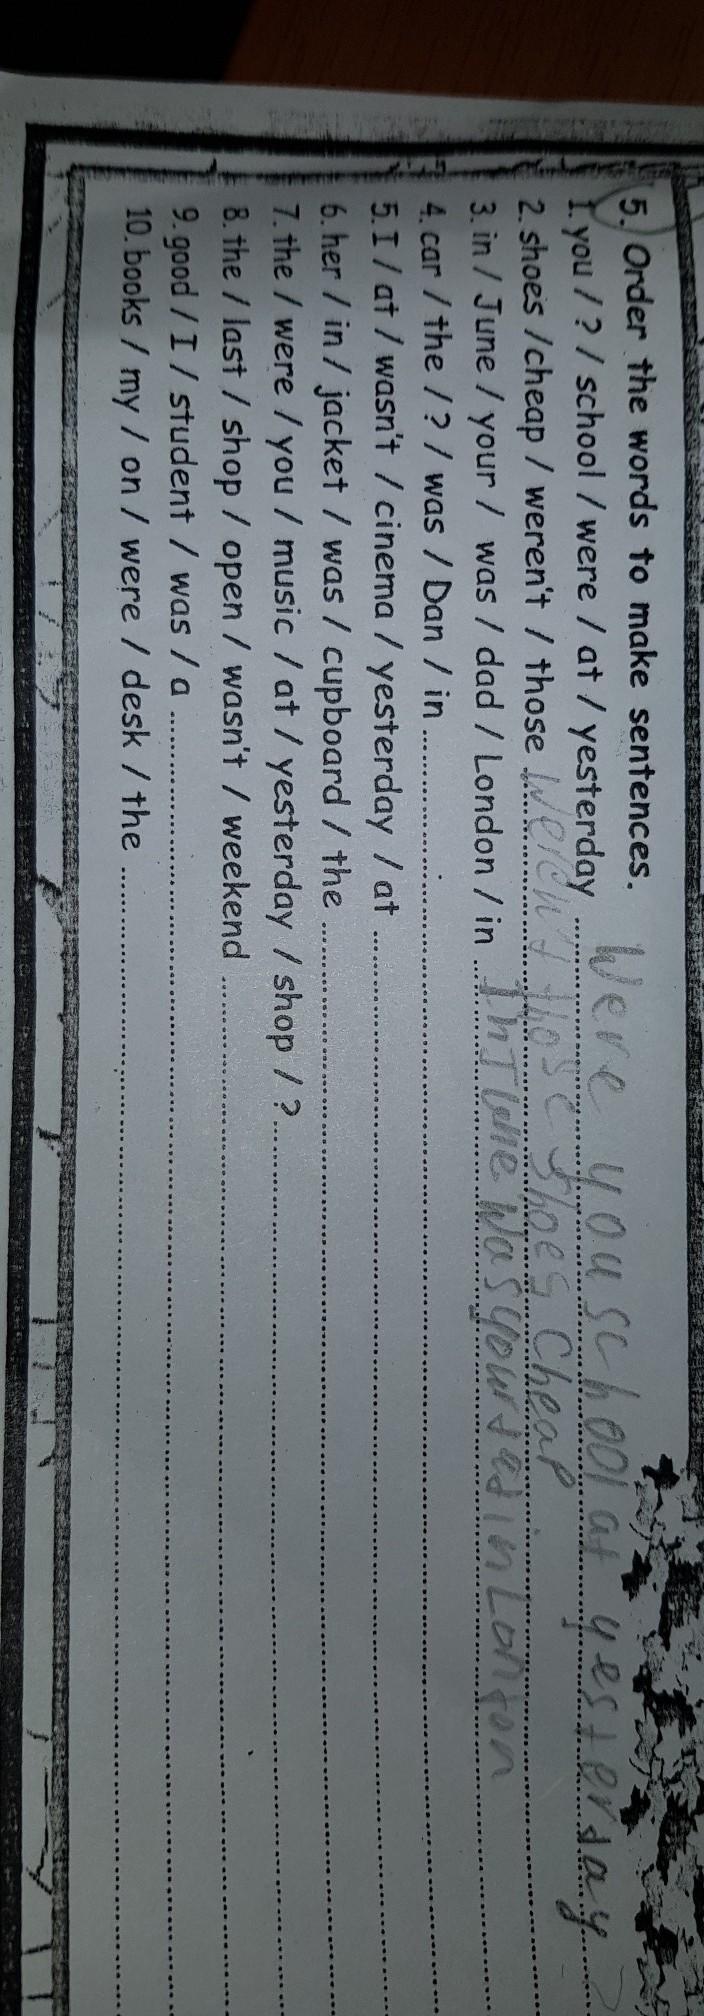 5. Order the words to make sentences.
1. you / ? / school / were / at / yesterday .......... Were you school at yesterday ?
2. shoes / cheap / weren't / those .......... Weren't those shoes cheap
3. in / June / your / was / dad / London / in .......... In June was your dad in London
4. car / the / ? / was / Dan / in ..........
5. I / at / wasn't / cinema / yesterday / at ..........
6. her / in / jacket / was / cupboard / the ..........
7. the / were / you / music / at / yesterday / shop / ? ..........
8. the / last / shop / open / wasn't / weekend ..........
9. good / I / student / was / a ..........
10. books / my / on / were / desk / the ..........